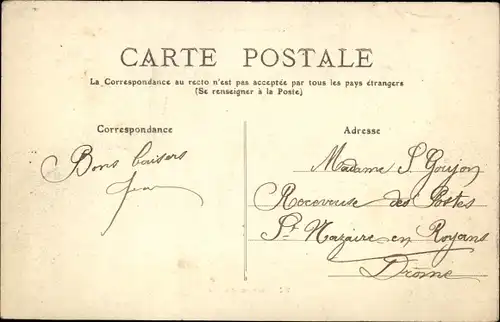 CARTE POSTALE
La Correspondance au recto n'est pas acceptée par tous les pays étrangers
(Se renseigner à la Poste)
Correspondance
Bons baisers
Jean
Adresse
Madame S. Goujon
Receveuse des Postes
St Nazaire en Royans
Drôme